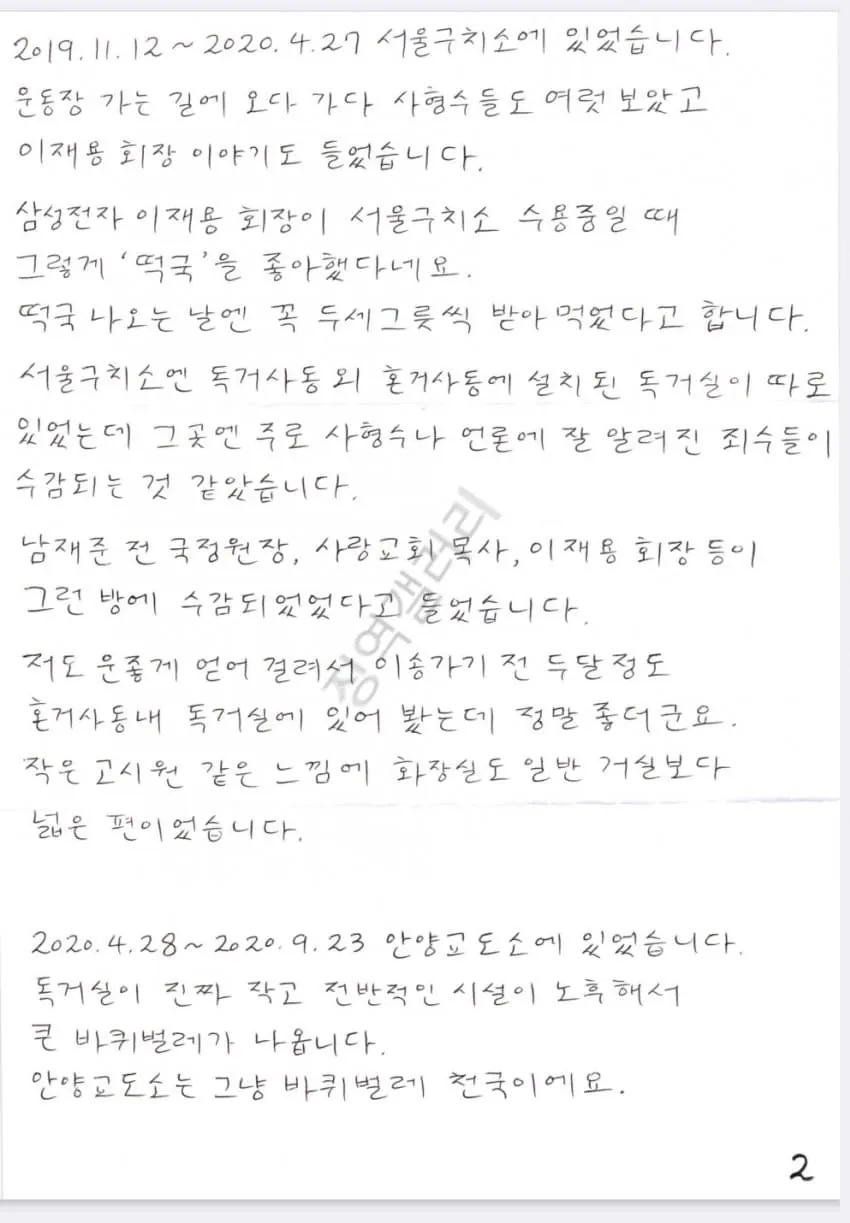 2019.11.12~2020.4.27 서울구치소에 있었습니다.
운동장 가는 길에 오다 가다 사형수들도 여럿 보았고
이재용 회장 이야기도 들었습니다.
삼성전자 이재용 회장이 서울구치소 수용중일 때
그렇게 '떡국'을 좋아했다네요.
떡국 나오는 날엔 꼭 두세그릇씩 받아 먹었다고 합니다.
서울구치소엔 독거사동 외 혼거사동에 설치된 독거실이 따로
있었는데 그곳엔 주로 사형수나 언론에 잘 알려진 죄수들이
수감되는 것 같았습니다.
남재준 전 국정원장, 사랑교회 목사, 이재용 회장 등이
그런 방에 수감되었었다고 들었습니다.
저도 운좋게 얻어 걸려서 이송가기 전 두달정도
혼거사동내 독거실에 있어 봤는데 정말 좋더군요.
작은 고시원 같은 느낌에 화장실도 일반 거실보다
넓은 편이었습니다.
2020.4.28~2020.9.23 안양교도소에 있었습니다.
독거실이 진짜 작고 전반적인 시설이 노후해서
큰 바퀴벌레가 나옵니다.
안양교도소는 그냥 바퀴벌레 천국이에요.
2
징역갤러리